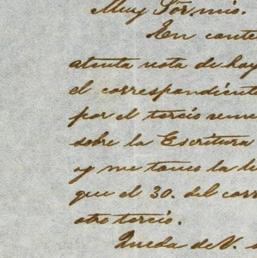 Muy Sor. mio.
En conte
atenta nota de hoy
el correspondiente
por el tercio
sobre la Escritura
y me tomo la li
que el 30. del corr
otro tercio.
Queda de V. a